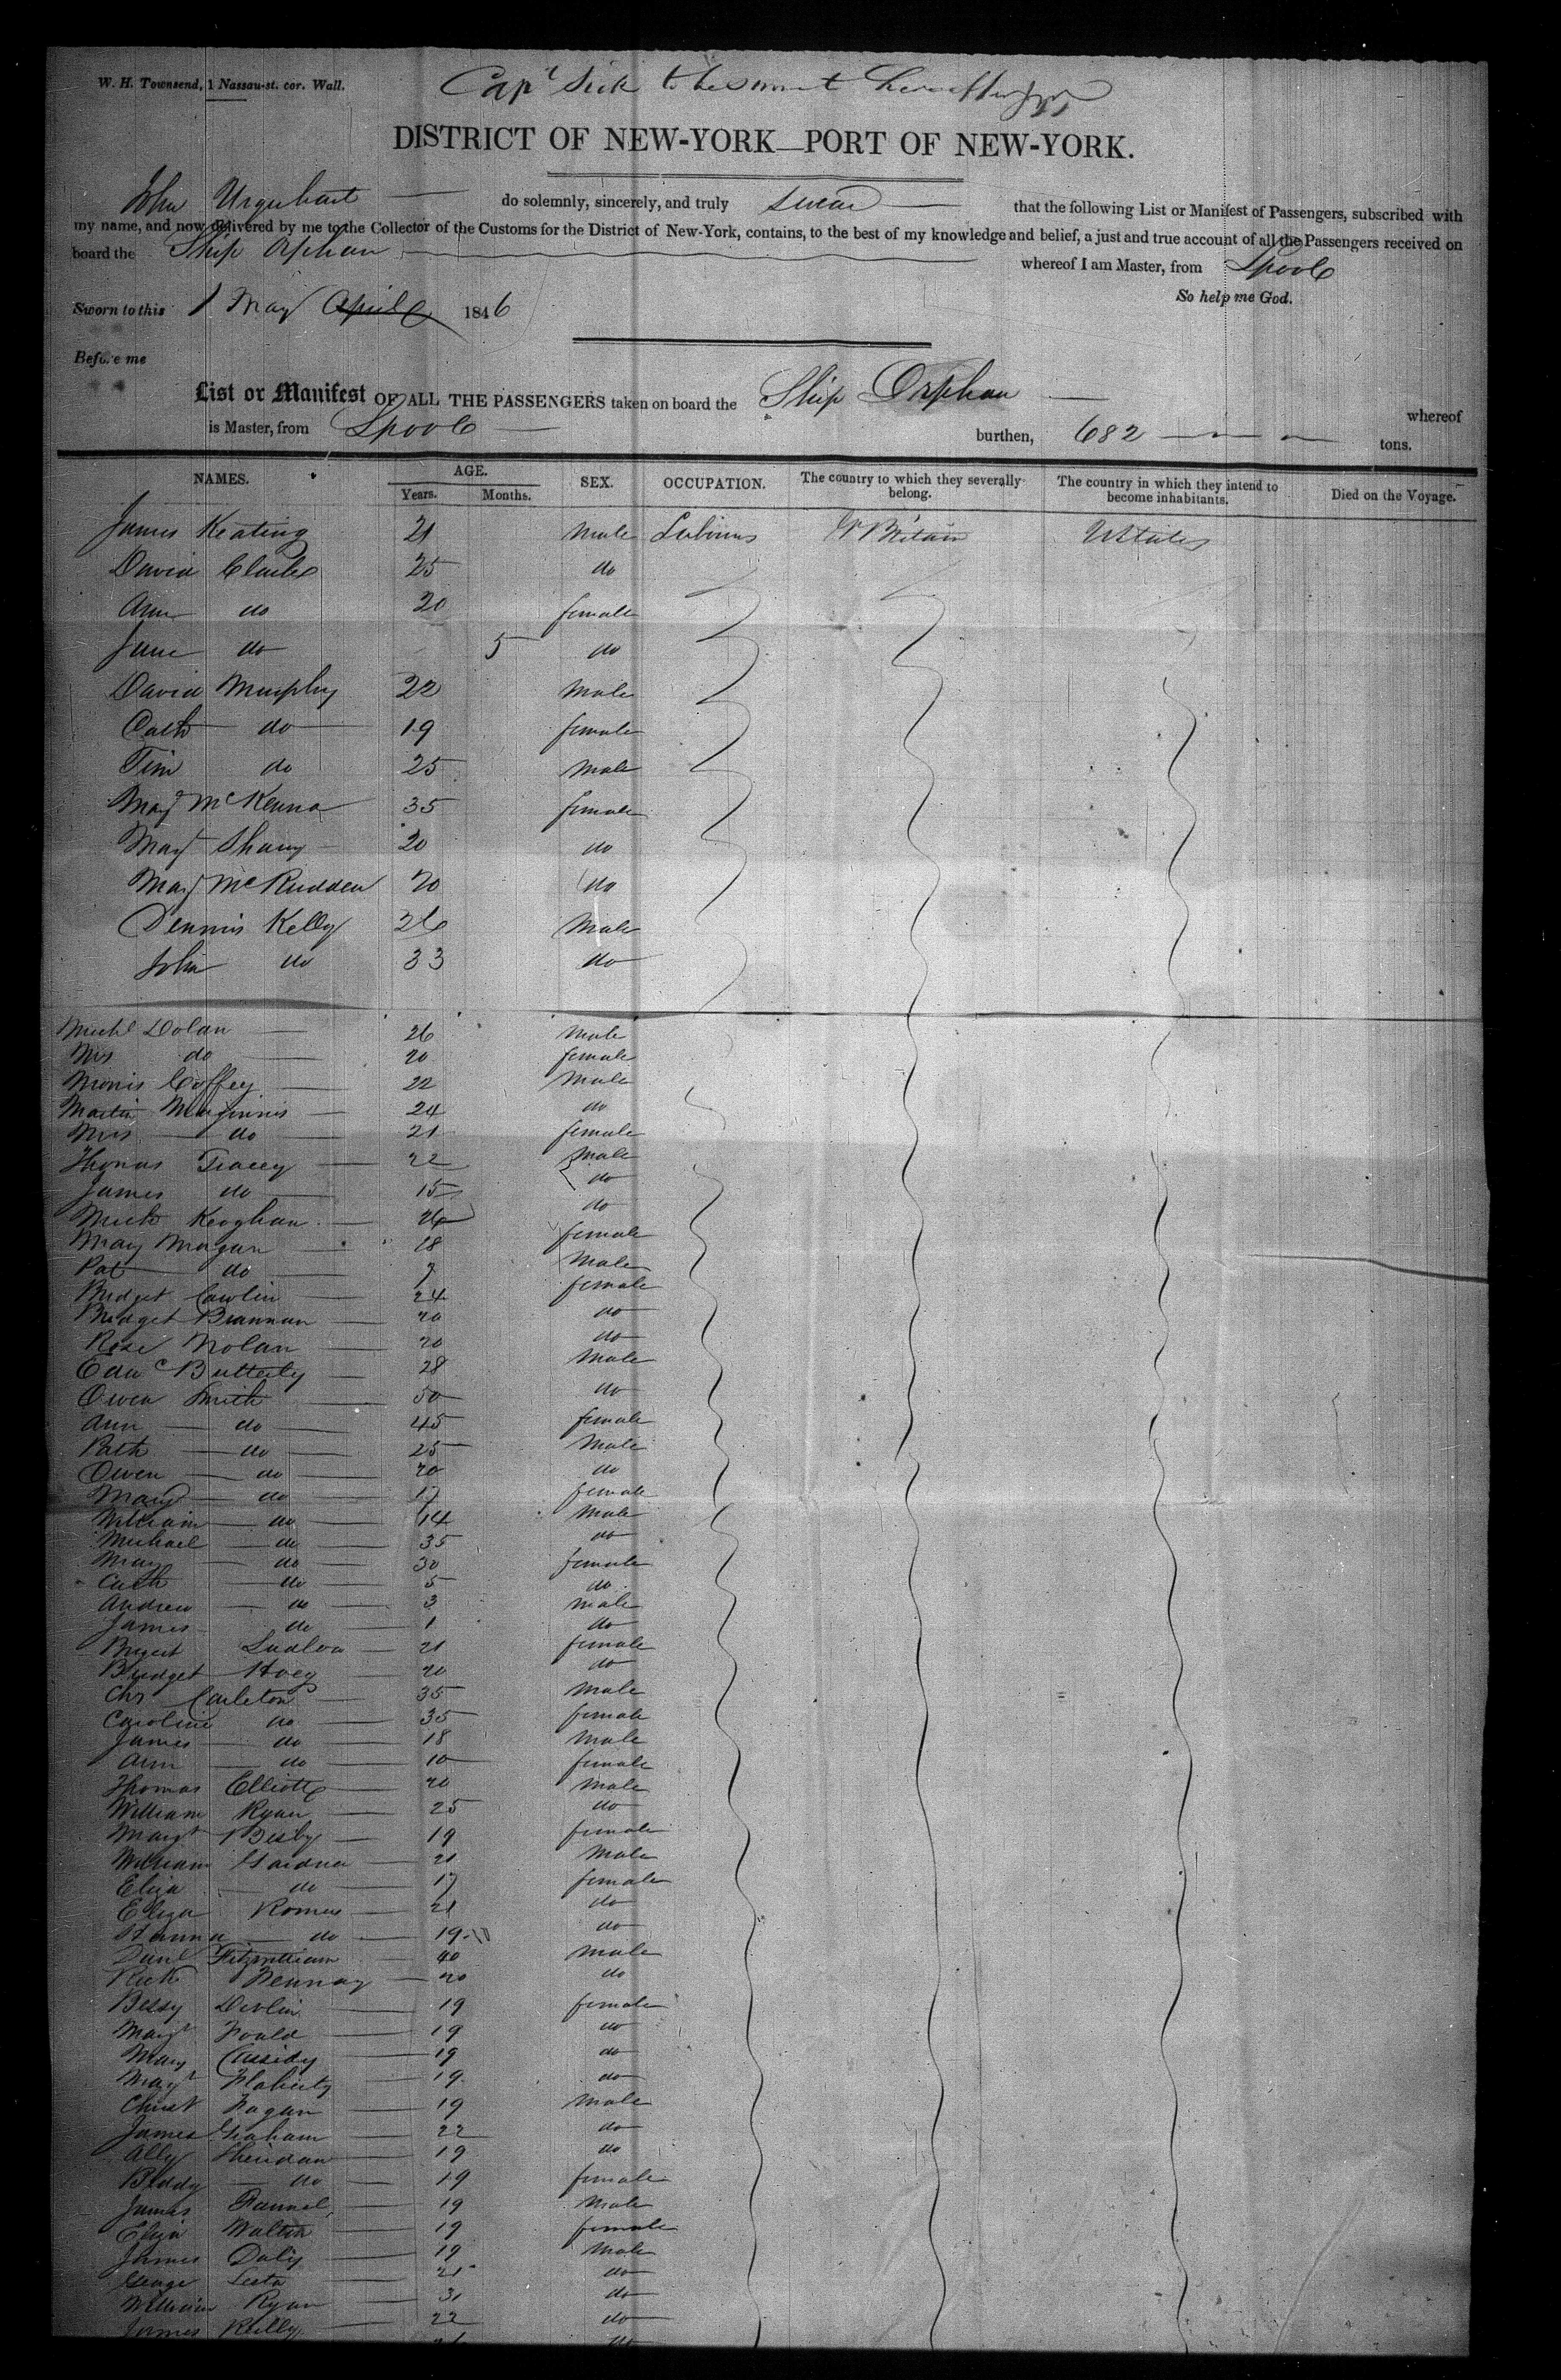 W. H. Townsend, 1 Nassau-st. cor. Wall.
Capt Sick to be sworn hereafter
DISTRICT OF NEW-YORK—PORT OF NEW-YORK.
John Urquhart do solemnly, sincerely, and truly swear that the following List or Manifest of Passengers, subscribed with
my name, and now delivered by me to the Collector of the Customs for the District of New-York, contains, to the best of my knowledge and belief, a just and true account of all the Passengers received on
board the Ship Orphan whereof I am Master, from Lpool
So help me God.
Sworn to this 1 May April 1846
Before me
List or Manifest OF ALL THE PASSENGERS taken on board the Ship Orphan whereof
is Master, from Lpool burthen, 682 tons.
NAMES. AGE. SEX. OCCUPATION. The country to which they severally belong. The country in which they intend to become inhabitants. Died on the Voyage.
Years. Months.
James Keating 21 Male Gt Britain UStates
David Clarke 25 do
Ann do 20 female
Jane do 5 do
David Murphy 22 Male
Cath do 19 female
Tim do 25 Male
Mary McKenna 35 female
20 do
Mary McRudden 20 do
Dennis Kelly 26 Male
John do 33 do
Michl Dolan 26 Male
Mrs do 20 female
Morris Coffey 22 Male
Martin Maginnis 24 do
Mrs do 21 female
Thomas Tracey 22 Male
James do 15 do
Mich Keoghan 26 do
Mary Morgan 18 female
Pat do 7 Male
Bridget Cawlin 24 female
Bridget Brannan 20 do
Rose Nolan 20 do
Butterly 28 Male
Owen Smith 50 do
Ann do 45 female
Path do 25 Male
Owen do 20 do
Mary do 17 female
William do 14 Male
Michael do 35 do
Mary do 30 female
Cath do 5 do
Andrew do 3 male
James do 1 do
Ludlow 21 female
Bridget Hoey 20 do
Chs Carleton 35 Male
Caroline do 35 female
James do 18 Male
Ann do 10 female
Thomas Elliott 20 Male
William Ryan 25 do
Margt 19 female
William Gardner 21 Male
Eliza do 17 female
Eliza 21 do
Hanna do 19 do
Danl Fitzwilliam 40 Male
20 do
Bessy Devlin 19 female
Margt 19 do
Mary Cassidy 19 do
Margt Flaherty 19 do
Christ Fagan 19 Male
James Graham 22 do
Ally Sheridan 19 do
Biddy do 19 female
James 19 Male
Eliza Walton 19 female
James Daly 19 Male
George 21 do
William Ryan 31 do
James Reilly 22 do
do